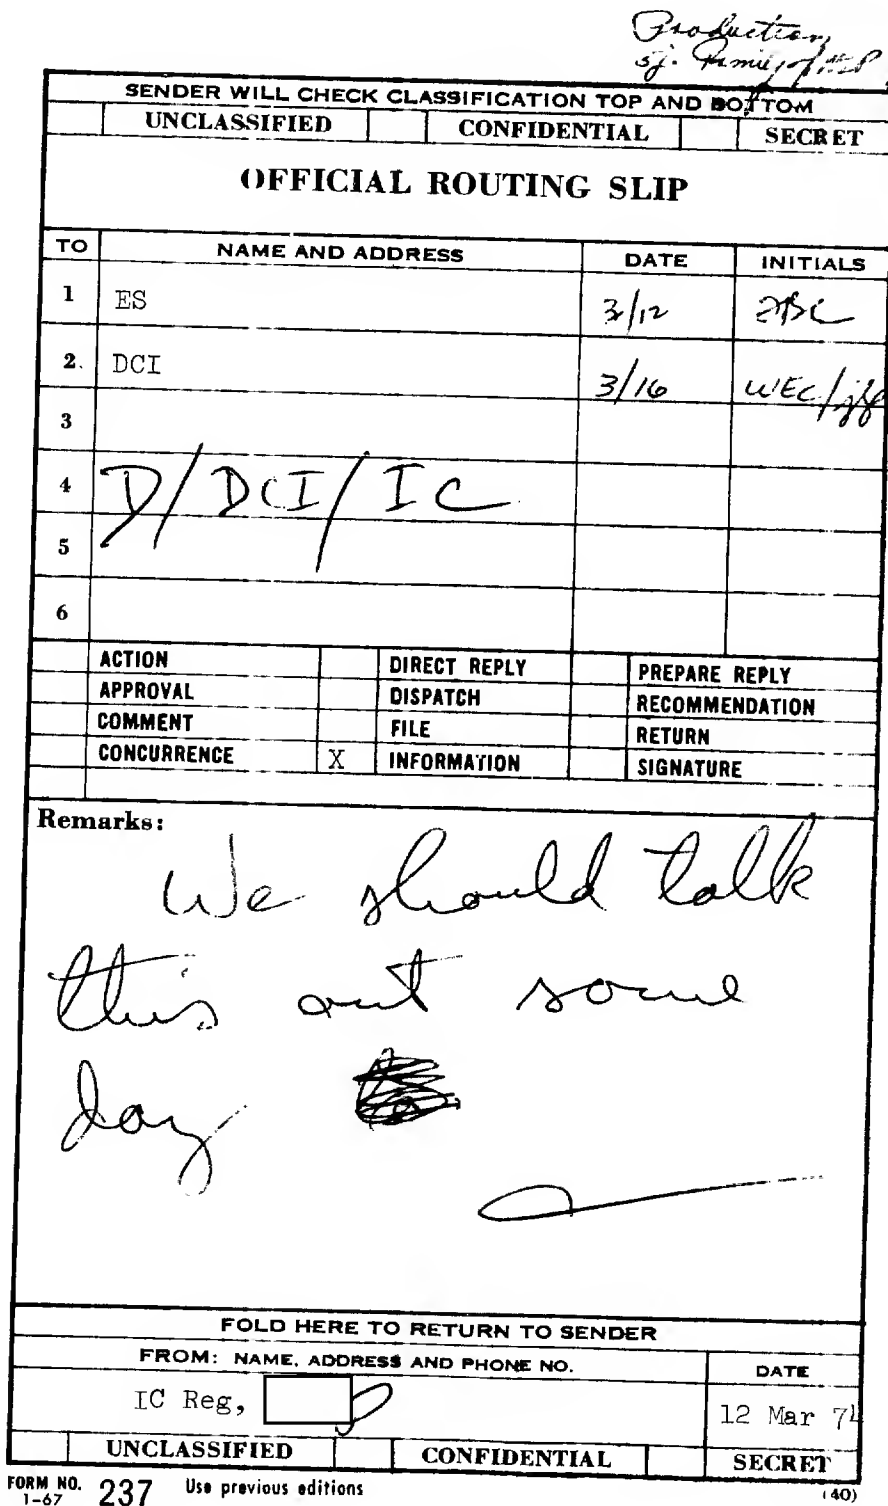 Production
SENDER WILL CHECK CLASSIFICATION TOP AND BOTTOM
UNCLASSIFIED CONFIDENTIAL SECRET
OFFICIAL ROUTING SLIP
TO NAME AND ADDRESS DATE INITIALS
1 ES 3/12
2. DCI 3/16 WEC/
3
4 D/DCI/IC
5
6
ACTION DIRECT REPLY PREPARE REPLY
APPROVAL DISPATCH RECOMMENDATION
COMMENT FILE RETURN
CONCURRENCE X INFORMATION SIGNATURE
Remarks:
We should talk
this out some
day
FOLD HERE TO RETURN TO SENDER
FROM: NAME, ADDRESS AND PHONE NO. DATE
IC Reg, 12 Mar 74
UNCLASSIFIED CONFIDENTIAL SECRET
FORM NO. 237 Use previous editions (40)
1-67